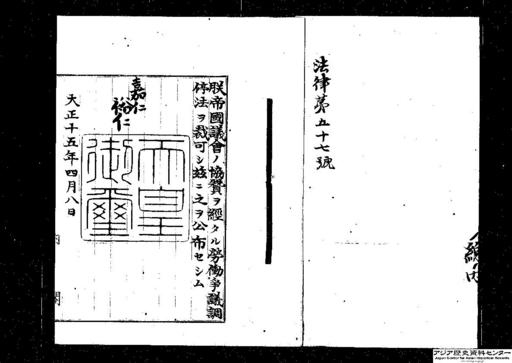 法律第五十七號
朕帝國議會ノ協賛ヲ經タル勞働爭議調
停法ヲ裁可シ玆ニ之ヲ公布セシム
嘉仁
裕仁
天皇
御璽
大正十五年四月八日
内閣
アジア歴史資料センター
Japan Center for Asian Historical Records